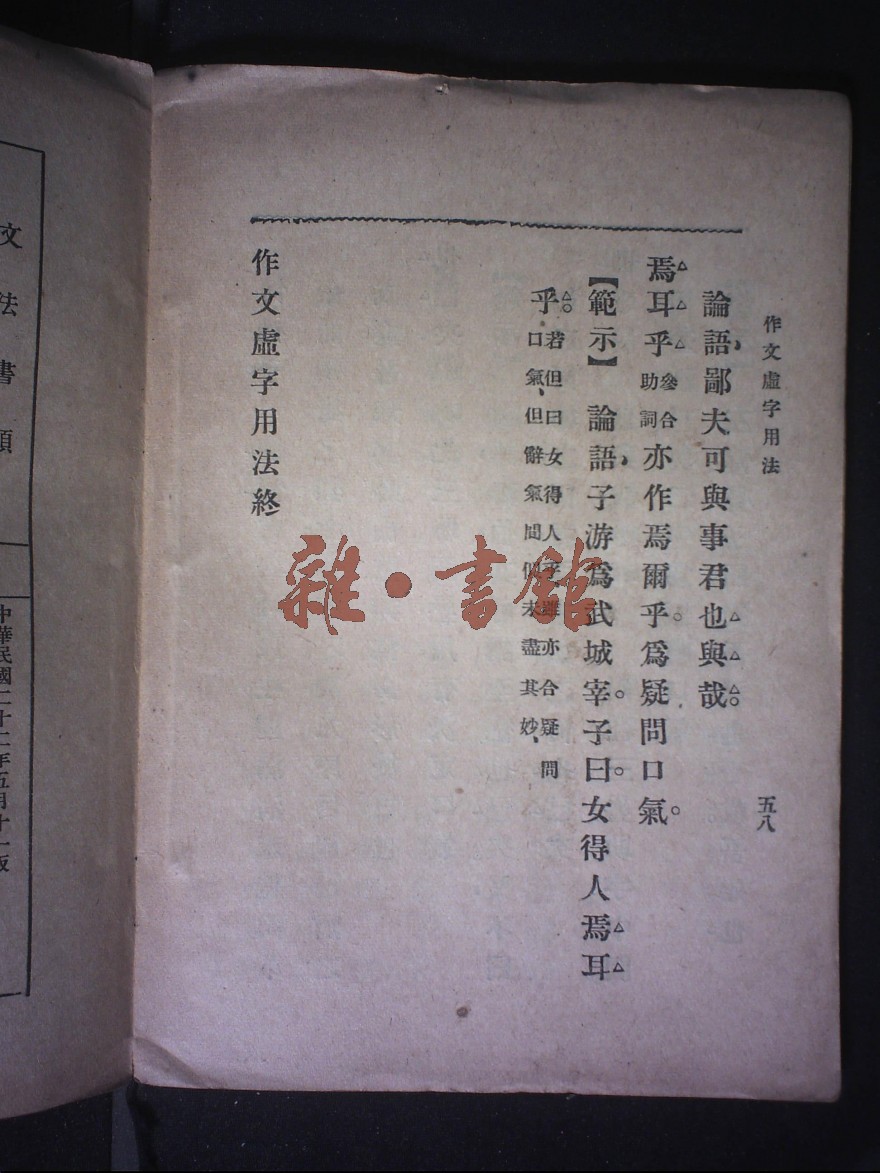 作文虛字用法
五八
論語、鄙夫可與事君也與哉。
焉耳乎參合助詞亦作焉爾乎。爲疑問口氣。
【範示】 論語、子游爲武城宰。子曰。女得人焉耳
乎。若但曰女得人乎雖亦合疑問
口氣、但辭氣間未盡其妙、
作文虛字用法終
文法書類
中華民國二十二年五月十一版
雜·書館